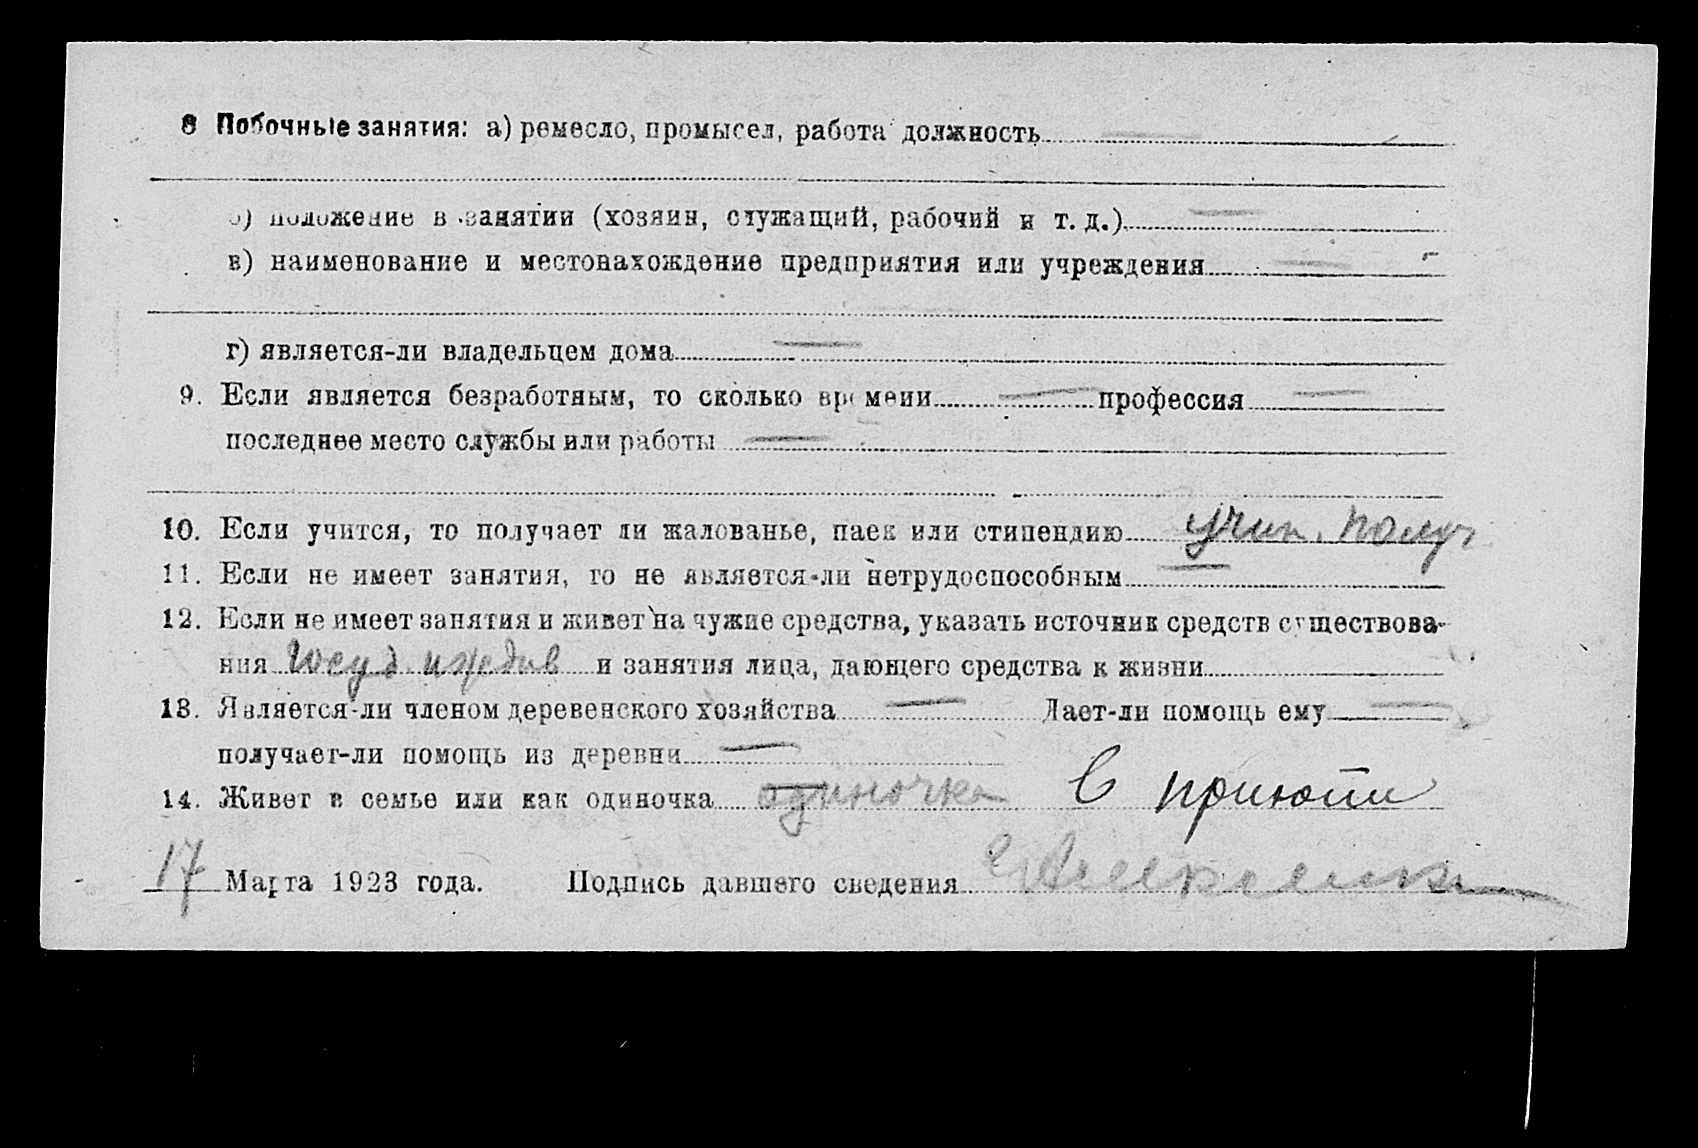 8 Побочные занятия: а) ремесло, промысел, работа должность
б) положение в занятии (хозяин, служащий, рабочий и т. д.)
в) наименование и местонахождение предприятия или учреждения
г) является-ли владельцем дома
9. Если является безработным, то сколько времени профессия
последнее место службы или работы
10. Если учится, то получает ли жалованье, паек или стипендию учин. получ
11. Если не имеет занятия, то не является-ли нетрудоспособным
12. Если не имеет занятия и живет на чужие средства, указать источник средств существова-
ния Госуд. иждив и занятия лица, дающего средства к жизни
13. Является-ли членом деревенского хозяйства Дает-ли помощь ему
получает-ли помощь из деревни
14. Живет в семье или как одиночка одиночка в приюти
17 Марта 1923 года. Подпись давшего сведения